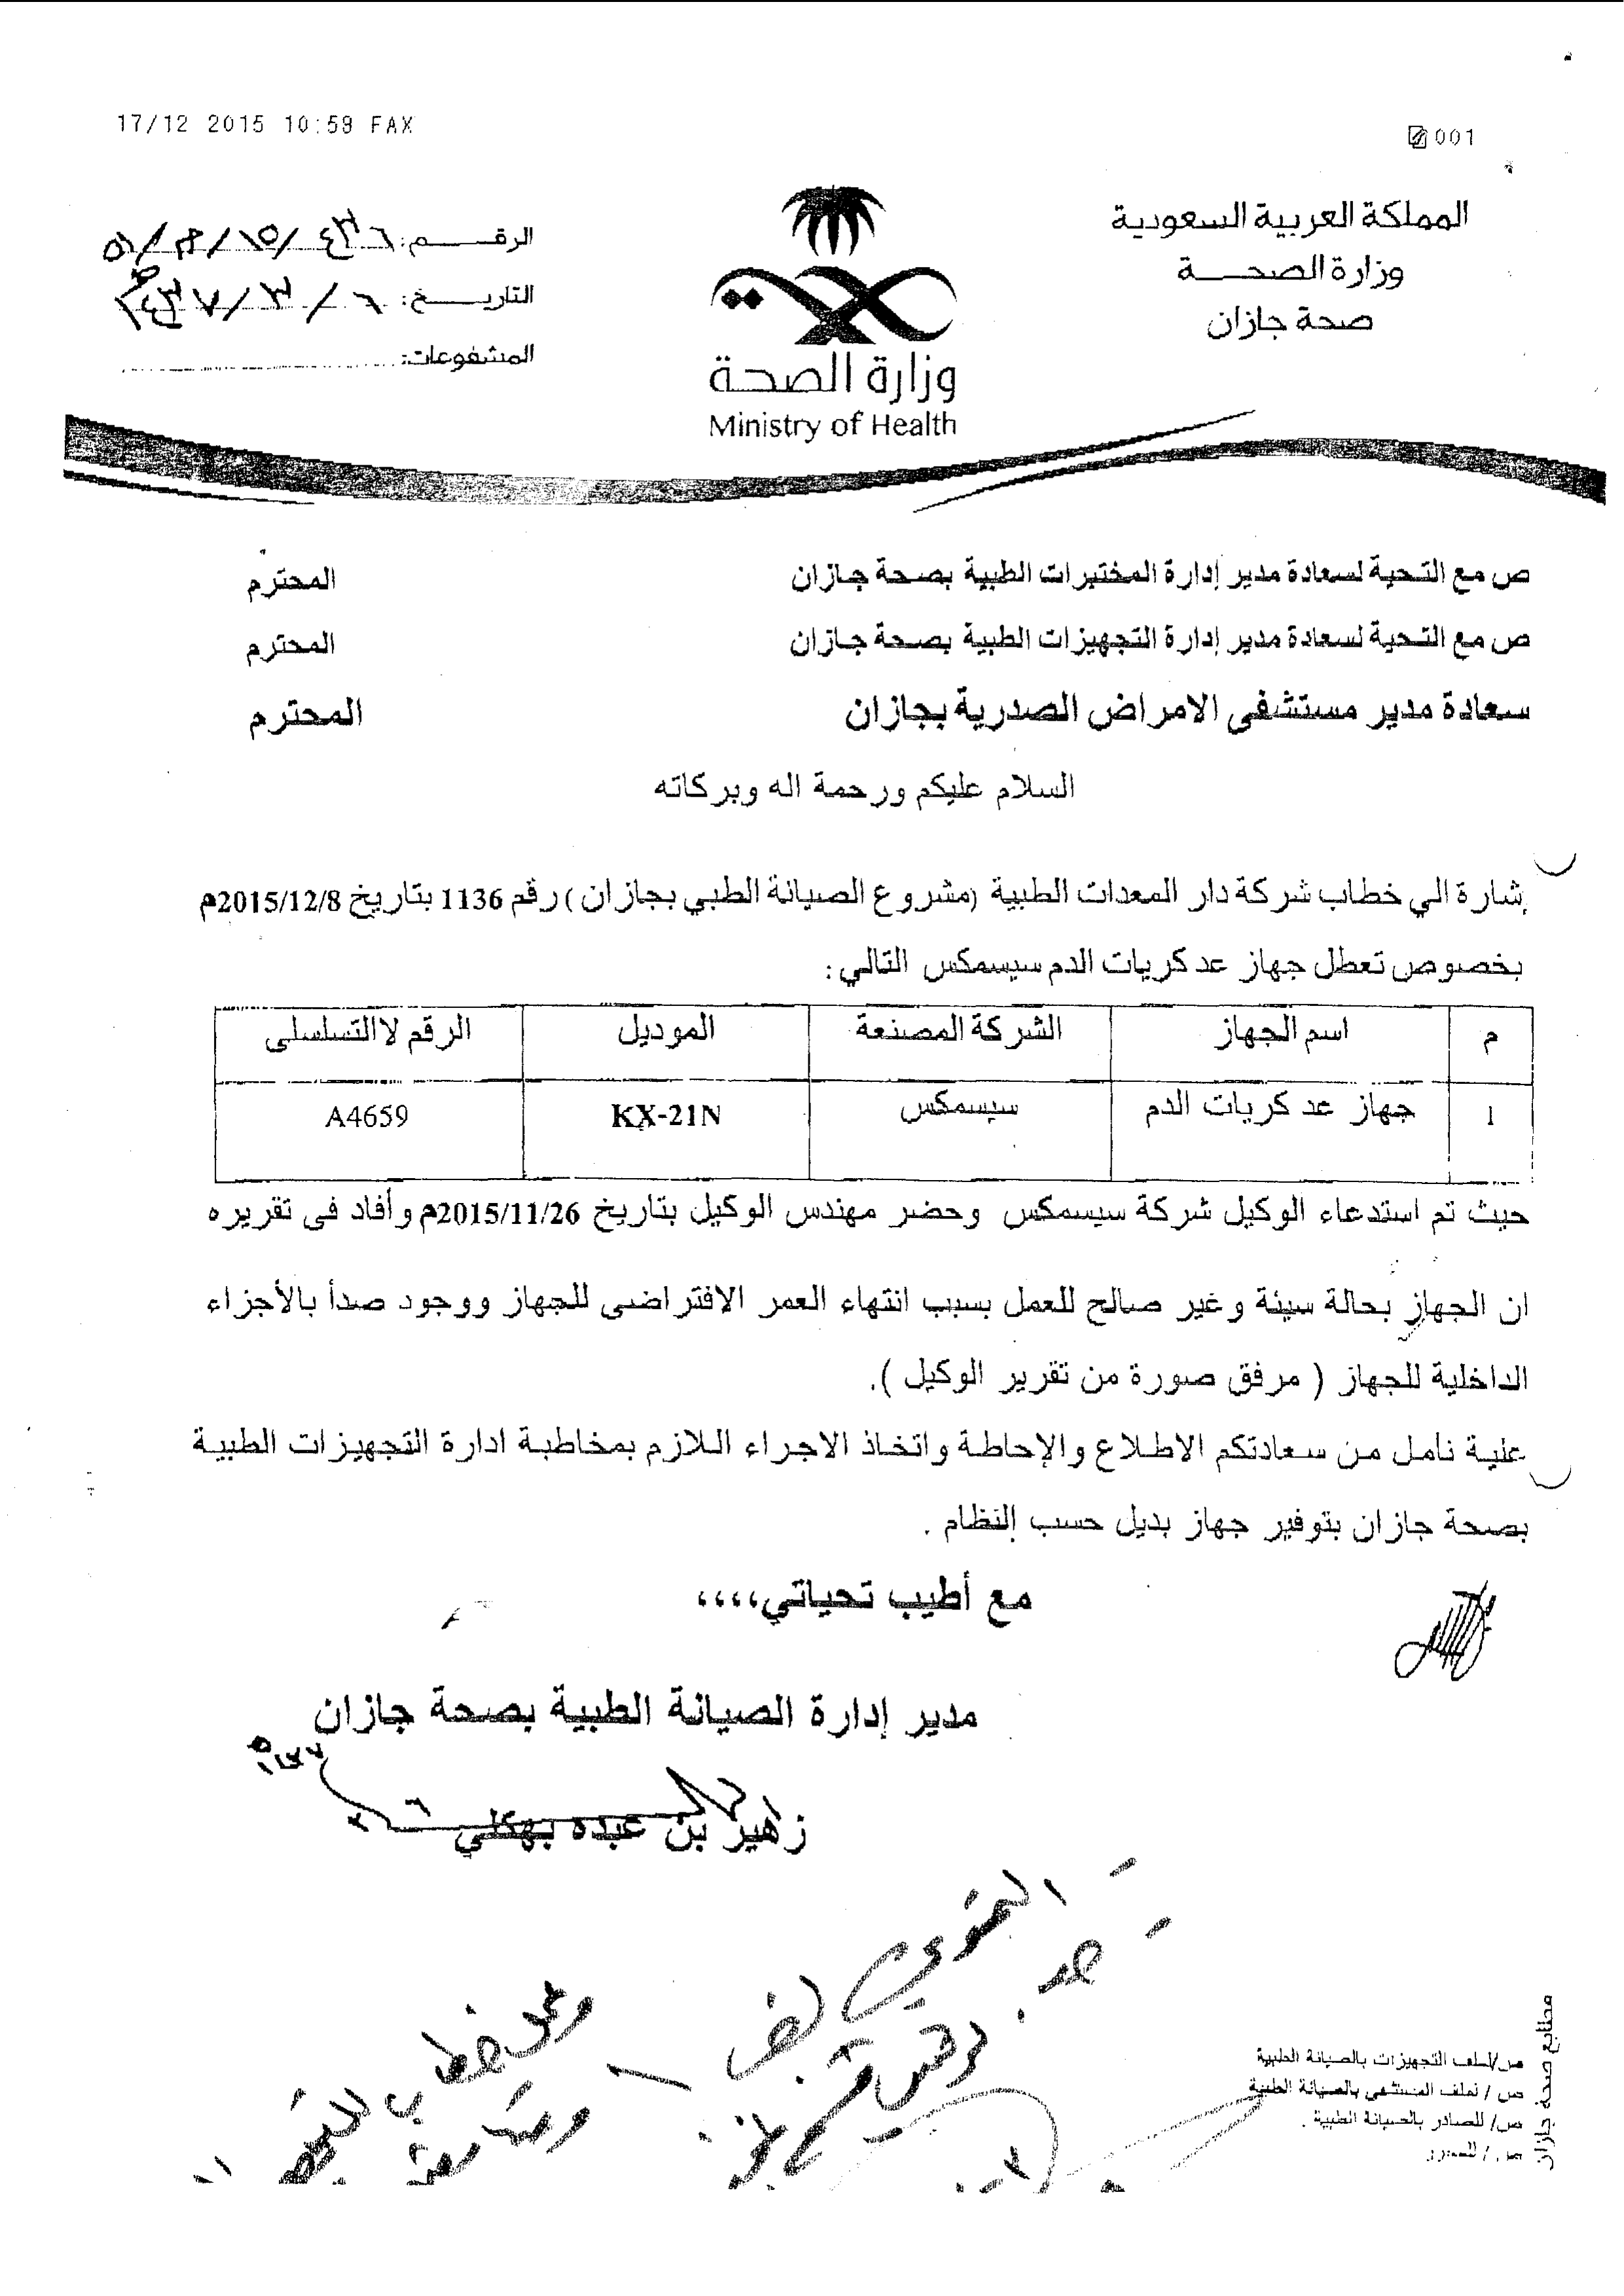 17/12 2015 10:59 FAX
001
المملكة العربية السعودية
وزارة الصحـــة
صحة جازان
وزارة الصحة
Ministry of Health
الرقـــــم:
التاريـــــخ: ٦ / ٣ / ١٤٣٧هـ
المشفوعات:
ص مع التحية لسعادة مدير إدارة المختبرات الطبية بصحة جازان المحترم
ص مع التحية لسعادة مدير إدارة التجهيزات الطبية بصحة جازان المحترم
سعادة مدير مستشفى الامراض الصدرية بجازان المحترم
السلام عليكم ورحمة اله وبركاته
إشارة الي خطاب شركة دار المعدات الطبية (مشروع الصيانة الطبي بجازان) رقم 1136 بتاريخ 2015/12/8م
بخصوص تعطل جهاز عد كريات الدم سيسمكس التالي:
م اسم الجهاز الشركة المصنعة الموديل الرقم لاالتسلسلى
1 جهاز عد كريات الدم سيسمكس KX-21N A4659
حيث تم استدعاء الوكيل شركة سيسمكس وحضر مهندس الوكيل بتاريخ 2015/11/26م وأفاد فى تقريره
ان الجهاز بحالة سيئة وغير صالح للعمل بسبب انتهاء العمر الافتراضى للجهاز ووجود صدأ بالأجزاء
الداخلية للجهاز ( مرفق صورة من تقرير الوكيل ).
علية نامل من سعادتكم الاطلاع والإحاطة واتخاذ الاجراء اللازم بمخاطبة ادارة التجهيزات الطبية
بصحة جازان بتوفير جهاز بديل حسب النظام .
مع أطيب تحياتي،،،،
مدير إدارة الصيانة الطبية بصحة جازان
زاهير بن عبده بهكلي
ص/لملف التجهيزات بالصيانة الطبية
ص / لملف المستشفى بالصيانة الطبية
ص/ للصادر بالصيانة الطبية .
مطابع صحة جازان